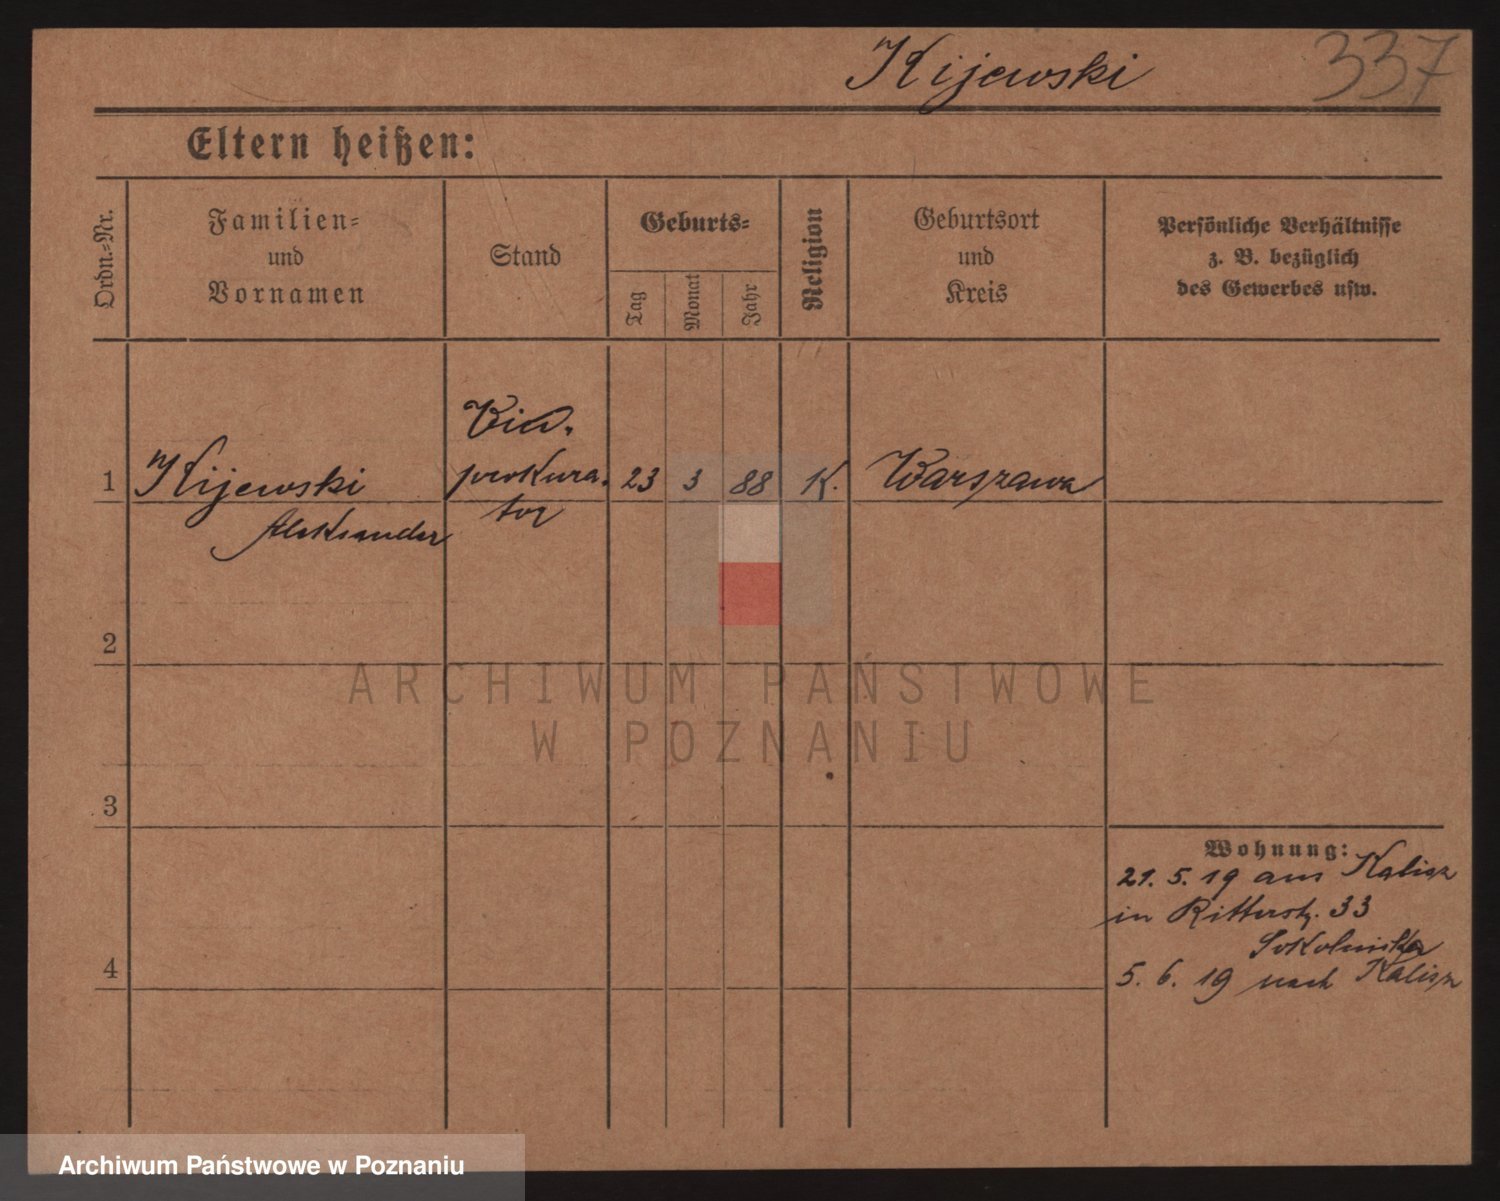 Kijewski 337
Eltern heißen:
Ordn.-Nr.
Familien-
und
Vornamen
Stand
Geburts-
Tag
Monat
Jahr
Religion
Geburtsort
und
Kreis
Persönliche Verhältnisse
z. B. bezüglich
des Gewerbes usw.
1 Kijewski
Aleksander
prokura-
tor
23 3 88 K. Warszawa
2
3
4
Wohnung:
21. 5. 19 aus Kalisz
in Ritterstr. 33
5. 6. 19 nach Kalisz
ARCHIWUM PAŃSTWOWE
W POZNANIU
Archiwum Państwowe w Poznaniu